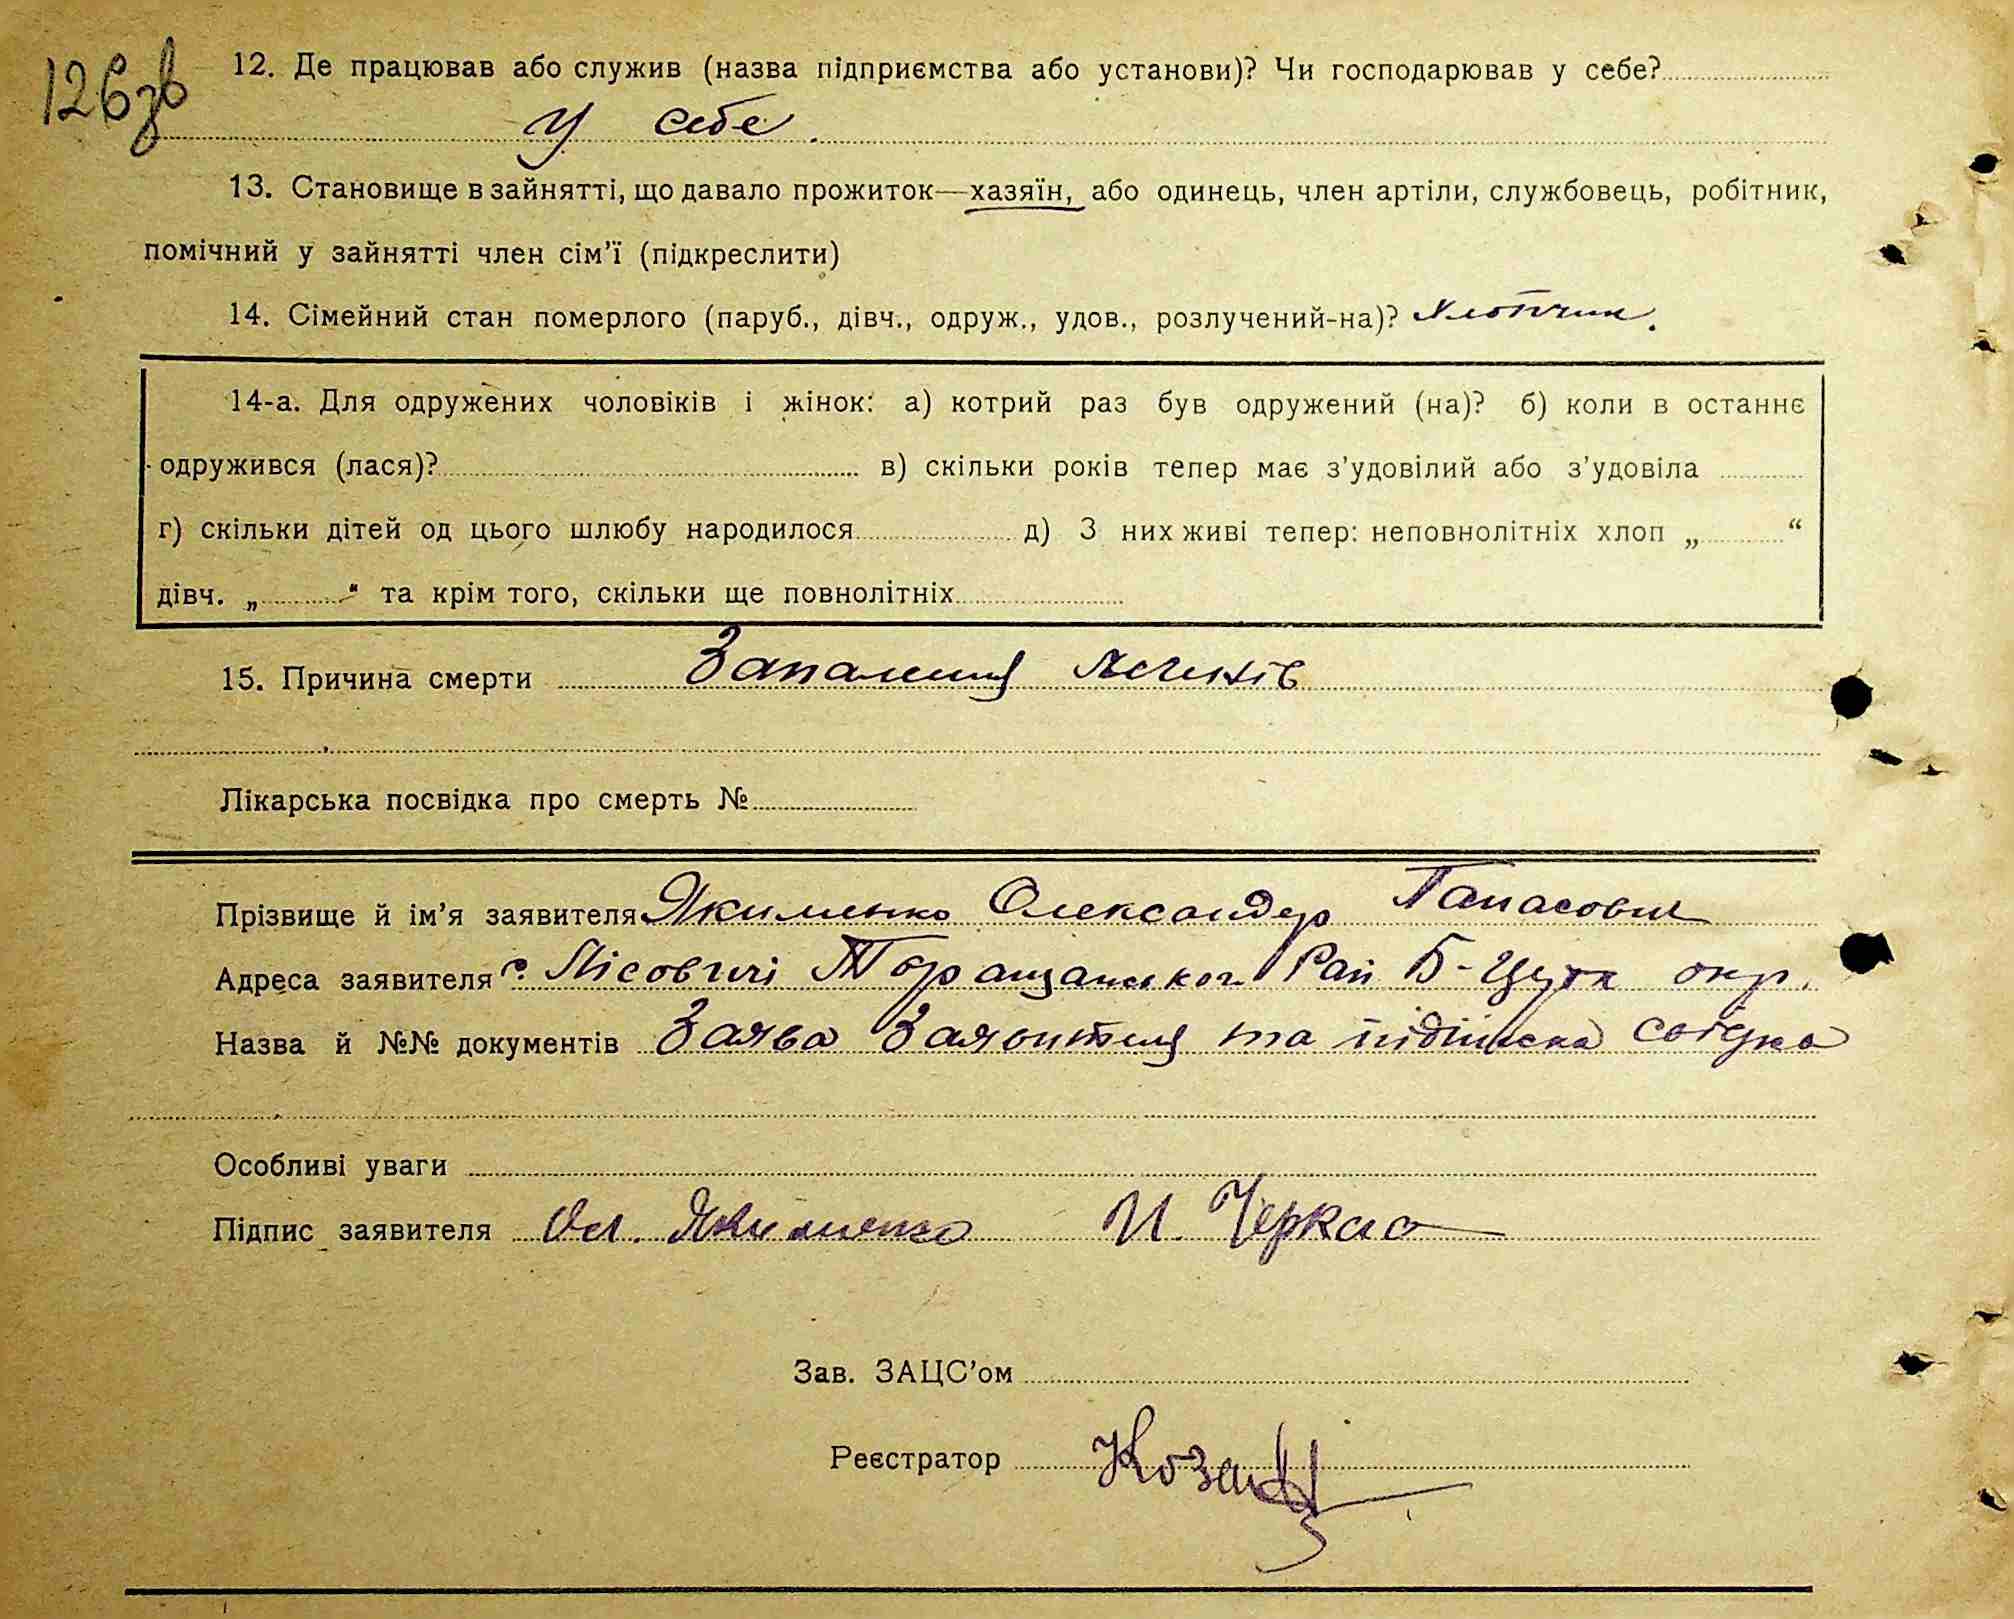 126зв
12. Де працював або служив (назва підприємства або установи)? Чи господарював у себе?
У себе.
13. Становище в зайнятті, що давало прожиток—хазяїн, або одинець, член артіли, службовець, робітник,
помічний у зайнятті член сім'ї (підкреслити)
14. Сімейний стан померлого (паруб., дівч., одруж., удов., розлучений-на)? Хлопчик.
14-а. Для одружених чоловіків і жінок: а) котрий раз був одружений (на)? б) коли в останнє
одружився (лася)? в) скільки років тепер має з'удовілий або з'удовіла
г) скільки дітей од цього шлюбу народилося д) З них живі тепер: неповнолітніх хлоп „ “
дівч. „ “ та крім того, скільки ще повнолітніх
15. Причина смерти Запалення легенів
Лікарська посвідка про смерть №
Прізвище й ім'я заявителя Якименко Олександер Панасович
Адреса заявителя с. Лісовичі Таращанськог Рай Б-Церк окр.
Назва й №№ документів Заява Заявителя та підписка свідка
Особливі уваги
Підпис заявителя Ол. Якименко И. Черкас
Зав. ЗАЦС'ом
Реєстратор